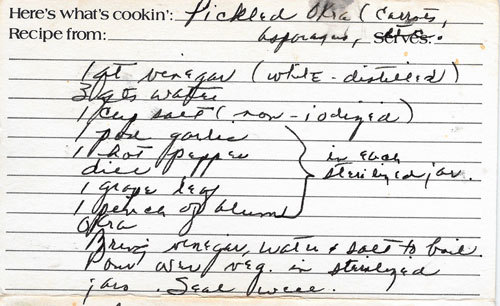 Here's what's cookin': Pickled Okra (Carrots,
Recipe from: asparagus, serves: etc.
1 qt vinegar (white-distilled)
3 qts water
1 cup salt (non-iodized)
1 pod garlic
1 hot pepper
dill
1 grape leaf
1 pinch of alum
in each
sterilized jar.
Okra
Bring vinegar, water & salt to boil.
Pour over veg. in sterilized
jars. Seal well.